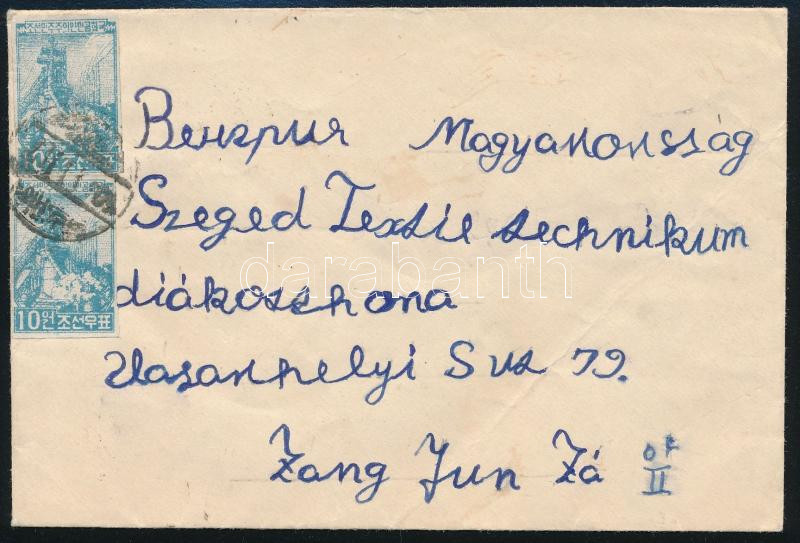 조선민주주의인민공화국
10원 조선우표
Венгрия Magyanonsság
Szeged Textil technikum
diákotthona
Vasanhelyi Sut 79.
Zang Jun Zá
II
darabanth